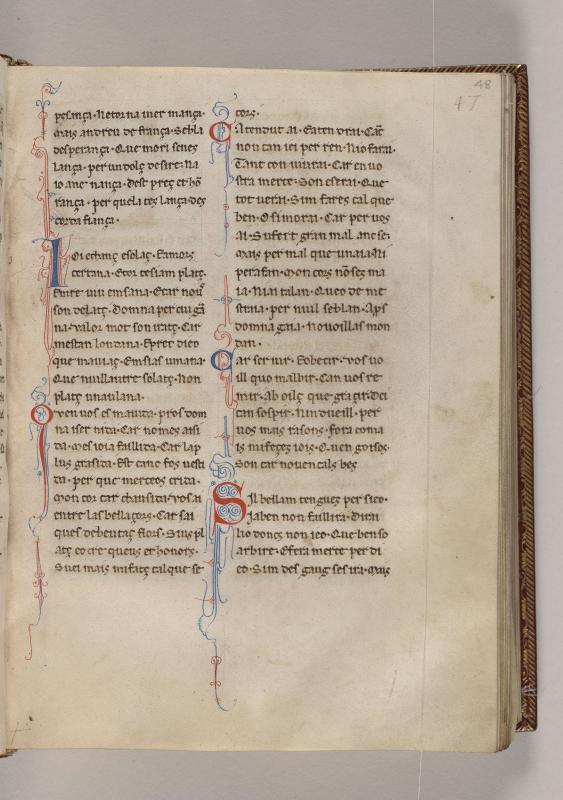 48
47
pesança· Netorna mer mança·
Mais andreu de frança· Sebla
desperança· Que mori senes
lança· per undolç desire· Na
io anc nança· dest preç et hō
rança· per quela ces lança· des
corda fiança·
Loi et chanç e solaç· E amors
certana· E cor cesiam plaç·
son delaiç· Domna per cui gā
na· valor mot son iraç· Car
mestan londana· E pret dieo
que mauiaç· Emsias umana·
Que nuillautre solaç· Non
platç unaulana·
Quen uos es mauda· pros dom
na iser uida· Car no mes aisi
da· Mes ioia faillida· Car lap
lus grasida· Est canc fos uesti
da· per que merces crida·
Mon cor car chausida· uos ai
entre las bellaçors· Car sai
ques debeutaç flors· Sius pl
aç co cre queus er honors·
Siuei mais mi faiç cal que se
cors·
Atendut ai· E aten drai· Cāt
non can iei per ren· Nio farai·
Tant con uiurai· Car en uo
stra merce· Son e serai· Que
tot uerai· Sim fares cal que
ben· O si morai· Car per uos
ai· Sufert gran mal anc se·
Mais per mal que unaia· Ni
perafan· Mon cors nōses ma
ia· Ni ai talan· Queo de me
straia· per nuil seblan· Aps
domna gaia· No uoillas mon
dan·
Car seruir· E obeir· uos uo
ill quo malbir· Can uos re
mir· Ab oilç que gracir dei
can sospir· Nin dueill· per
uos mais rasons· fora coma
is mi feçes iois· Quen go ises·
Son car nouencals bes
Sil bella m tengues per sieo·
Ja ben non faillira· Dirai
lio doncs non ieo· Que ben so
arbire· E fera merce per di
eo· Sim des gaug ses ira· Mais